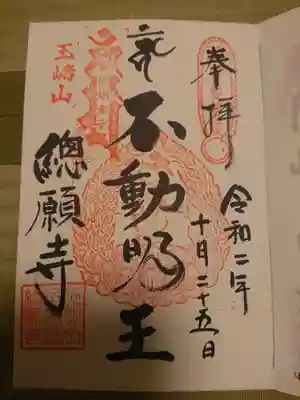 奉拝
令和二年
十月二十五日
不動明王
玉嶹山
總願寺